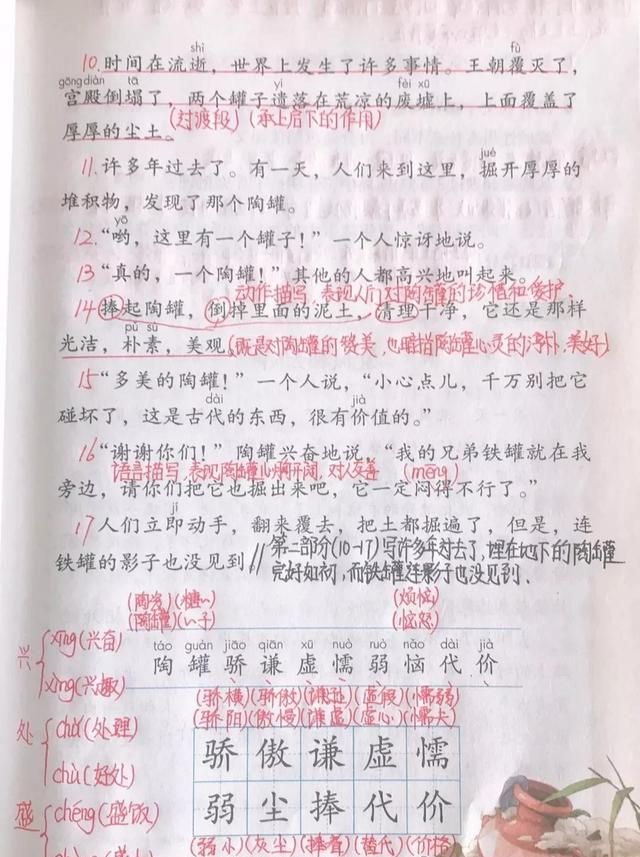 shì fù
10.时间在流逝，世界上发生了许多事情。王朝覆灭了，
gōng diàn tā yí fèi xū
宫殿倒塌了，两个罐子遗落在荒凉的废墟上，上面覆盖了
厚厚的尘土。(过渡段)(承上启下的作用)
jué
11.许多年过去了。有一天，人们来到这里，掘开厚厚的
堆积物，发现了那个陶罐。
yō
12.“哟，这里有一个罐子！”一个人惊讶地说。
13“真的，一个陶罐！”其他的人都高兴地叫起来。
动作描写，表现人们对陶罐的珍惜和爱护.
14捧起陶罐，倒掉里面的泥土，清理干净，它还是那样
pǔ sù
光洁，朴素，美观。(既是对陶罐的赞美，也暗指陶罐心灵的淳朴、美好)
15“多美的陶罐！”一个人说，“小心点儿，千万别把它
dài jià
碰坏了，这是古代的东西，很有价值的。”
16“谢谢你们！”陶罐兴奋地说，“我的兄弟铁罐就在我
语言描写，表现陶罐心胸开阔，对人友善 (mēng)
旁边，请你们把它也掘出来吧，它一定闷得不行了。”
jí
17人们立即动手，翻来覆去，把土都掘遍了，但是，连
铁罐的影子也没见到。// 第二部分(10-17)写许多年过去了，埋在地下的陶罐
完好如初，而铁罐连影子也没见到.
(陶瓷) (烦恼)
(陶罐) (恼怒)
兴 xīng(兴奋)
xìng(兴趣)
táo guàn jiāo qiān xū nuò ruò nǎo dài jià
陶 罐 骄 谦 虚 懦 弱 恼 代 价
(骄横)(骄傲)(谦逊)(虚假)(懦弱)
(骄阳)(傲慢)(谦虚)(虚心)(懦夫)
处 chǔ(处理)
chù(好处)
骄 傲 谦 虚 懦
弱 尘 捧 代 价
盛 chéng(盛饭)
(弱小)(灰尘)(替代)(价格)